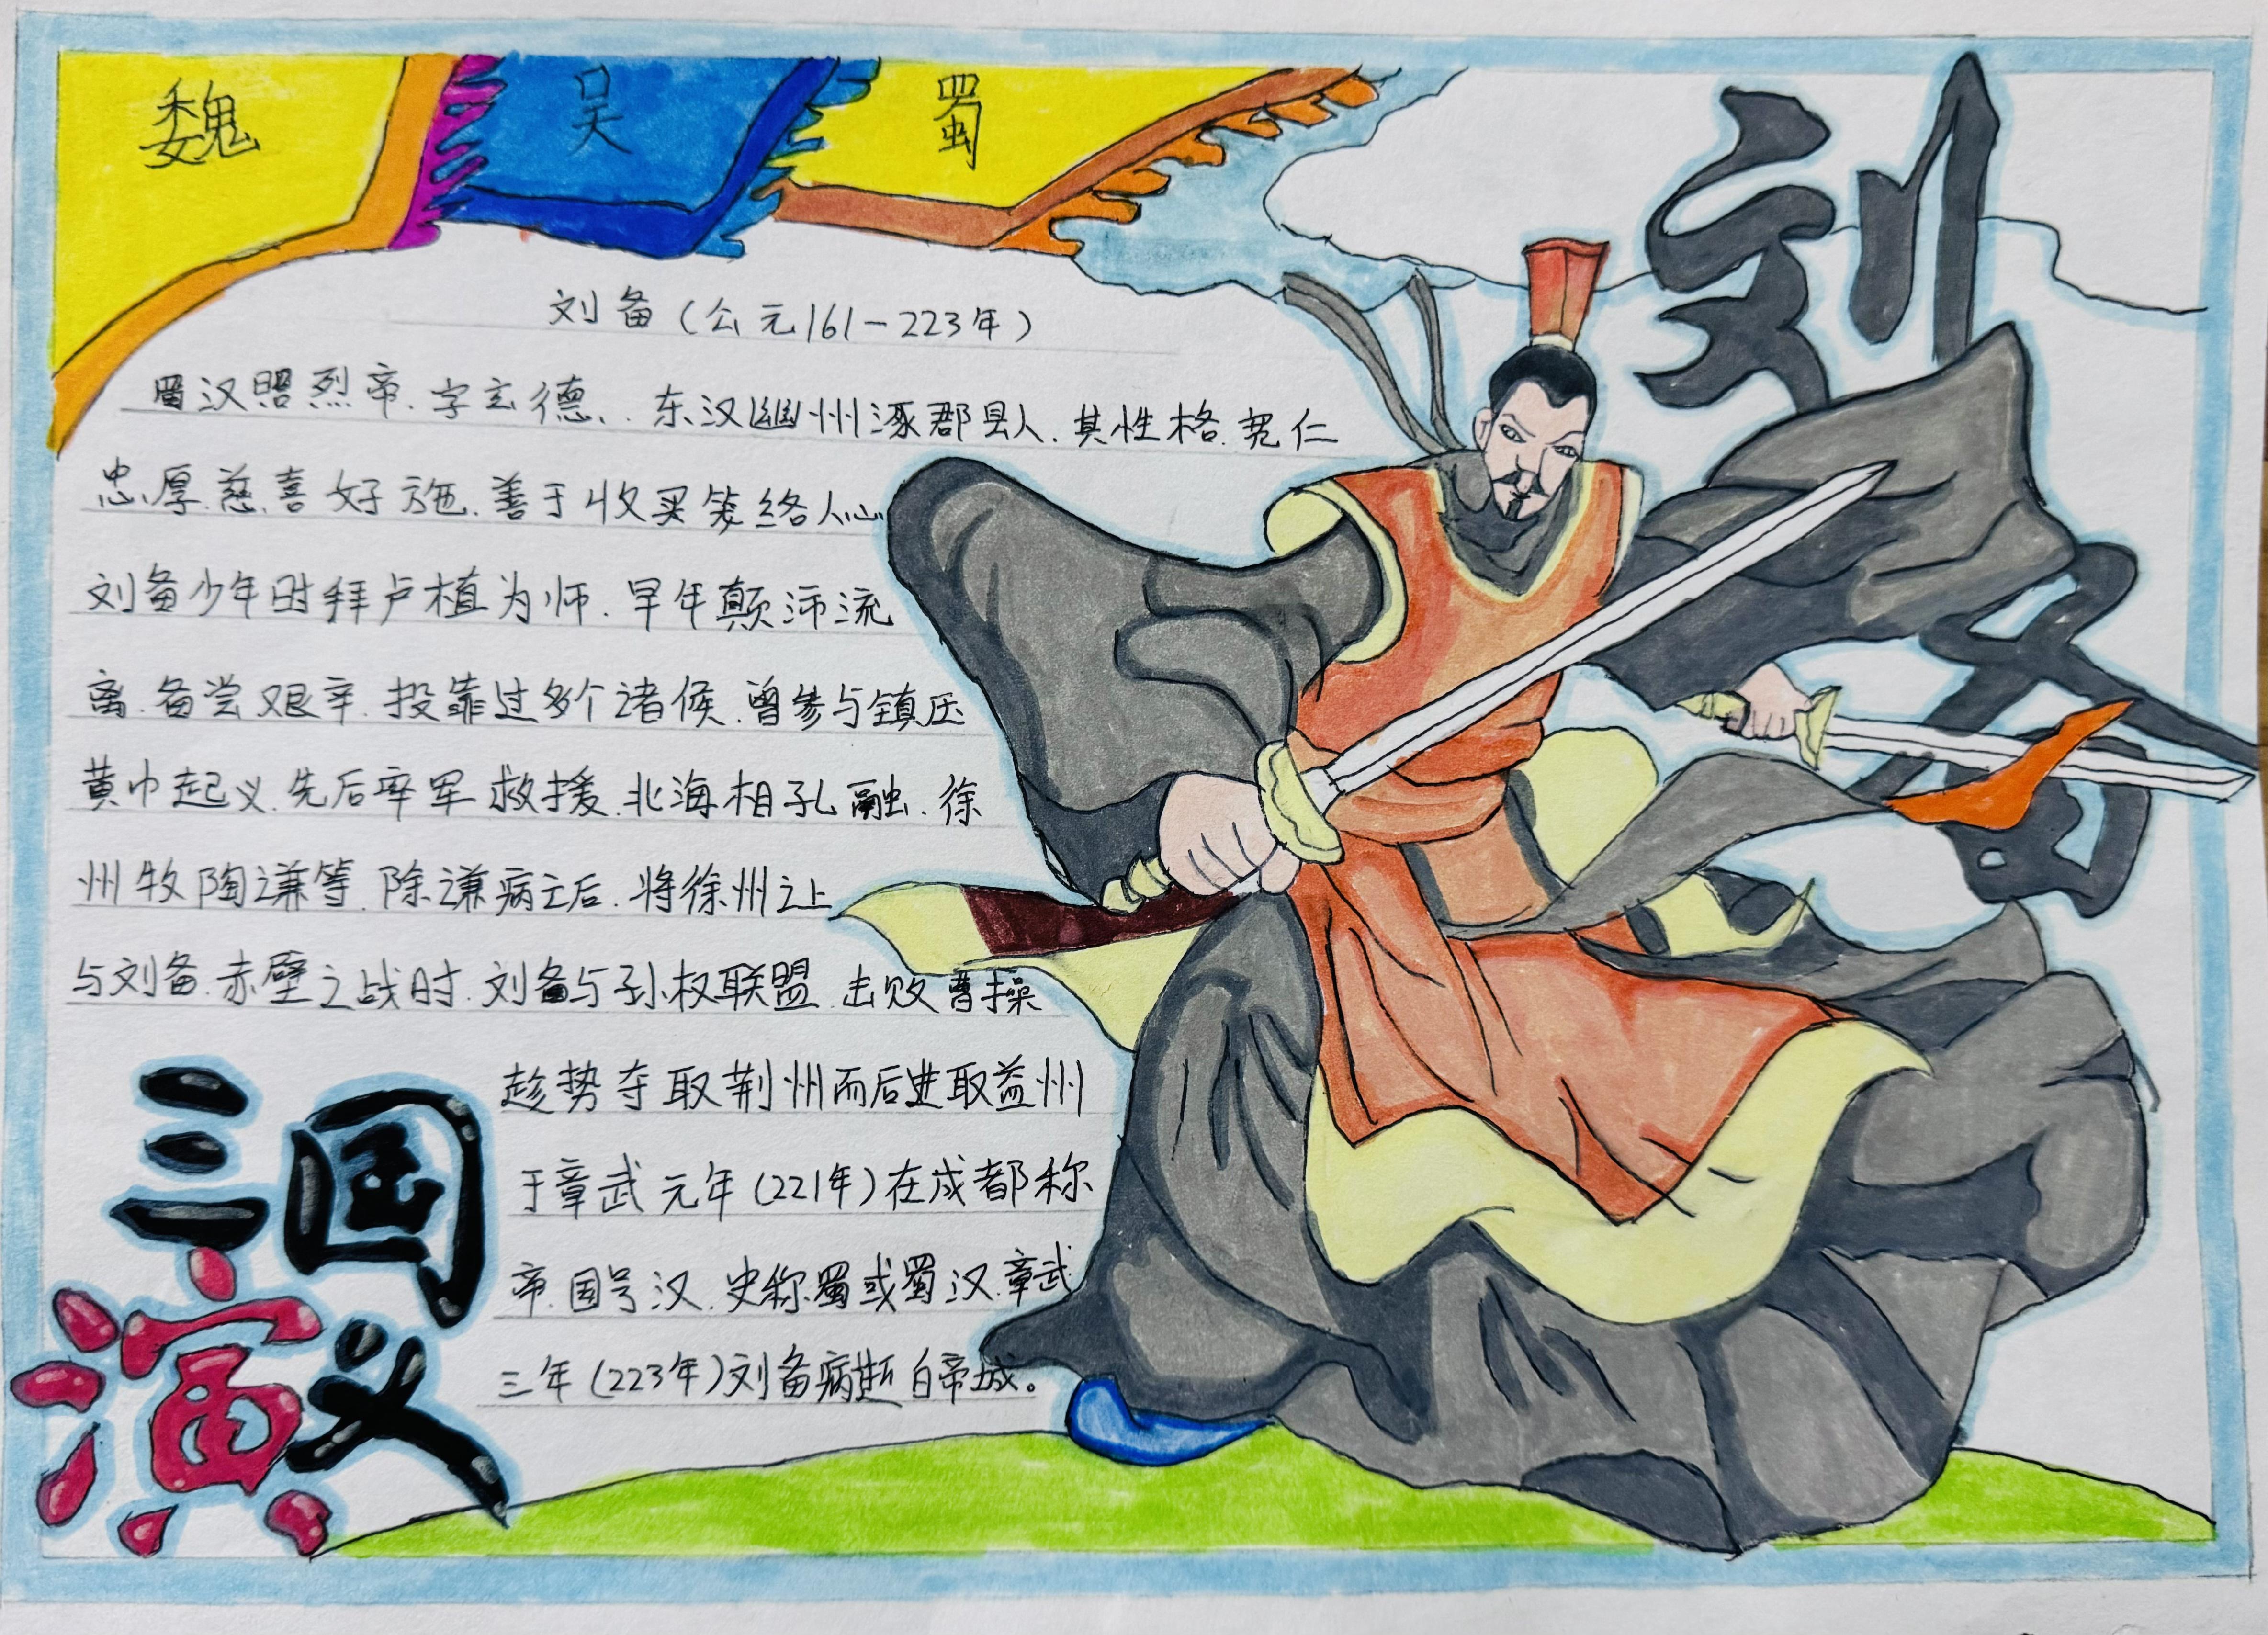 魏 吴 蜀
刘备
刘备(公元161-223年)
蜀汉昭烈帝.字玄德..东汉幽州涿郡县人.其性格.宽仁
忠厚.慈.喜好施.善于收买笼络人心
刘备少年时拜卢植为师.早年颠沛流
离.备尝艰辛.投靠过多个诸候.曾参与镇压
黄巾起义.先后率军救援.北海相孔融.徐
州牧陶谦等.除谦病亡后.将徐州之上
与刘备.赤壁之战时.刘备与孙权联盟.击败曹操
趁势夺取荆州而后进取益州
于章武元年(221年)在成都称
帝.国号汉.史称蜀或蜀汉.章武
三年(223年)刘备病逝白帝城。
三国
演义